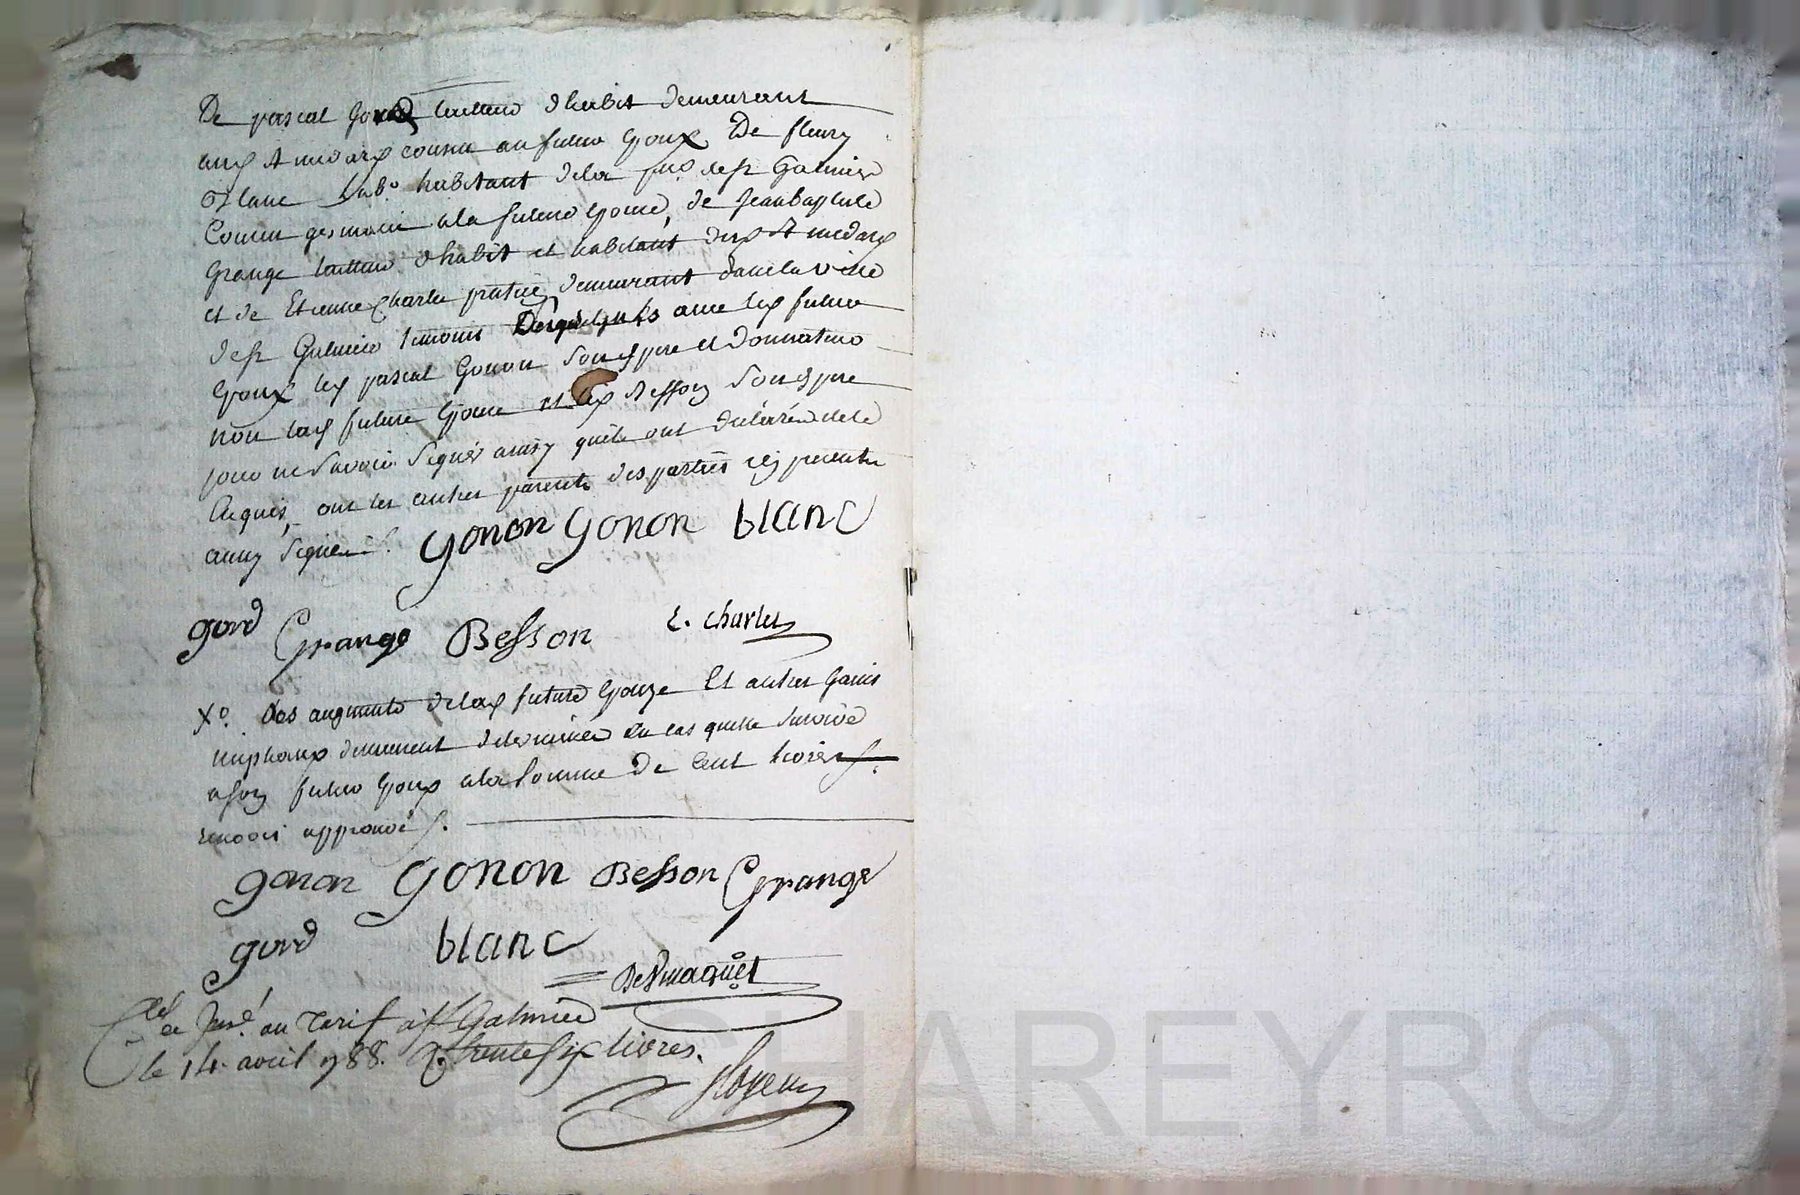 De pascal gord tailleur dhabit demeurant
aud St medard cousin au futur Epoux De fleury
Blanc Lab.r habitant dela par.se de St Galmier
Cousin germain ala future Epouse, de Jean Baptiste
Grange tailleur dhabit et habitant dud St medard
et de Etienne Charles praticien demeurant dans la ville
de St Galmier temoins avec led futur
Epoux led pascal Gonon Son pere et donnateur
non lad future Epouse et led Besson Son pere
pour ne Savoir Signer ainsy quils ont declaré de ce
Enquis, ont les autres parents des parties icy presents
aussy Signé.
Gonon Gonon blanc
gord Grange Besson E. Charles
X.o Les augments de lad future Epouze Et autres Gains
nuptiaux demeurent determinés En cas quelle Survive
a Son futur Epoux ala Somme de Cent livres
renvoi approuvé.
gonon Gonon Besson Grange
gord blanc
Desvmaquet
au Tarif à St Galmier
le 14. avril 788. R. trente Six livres.